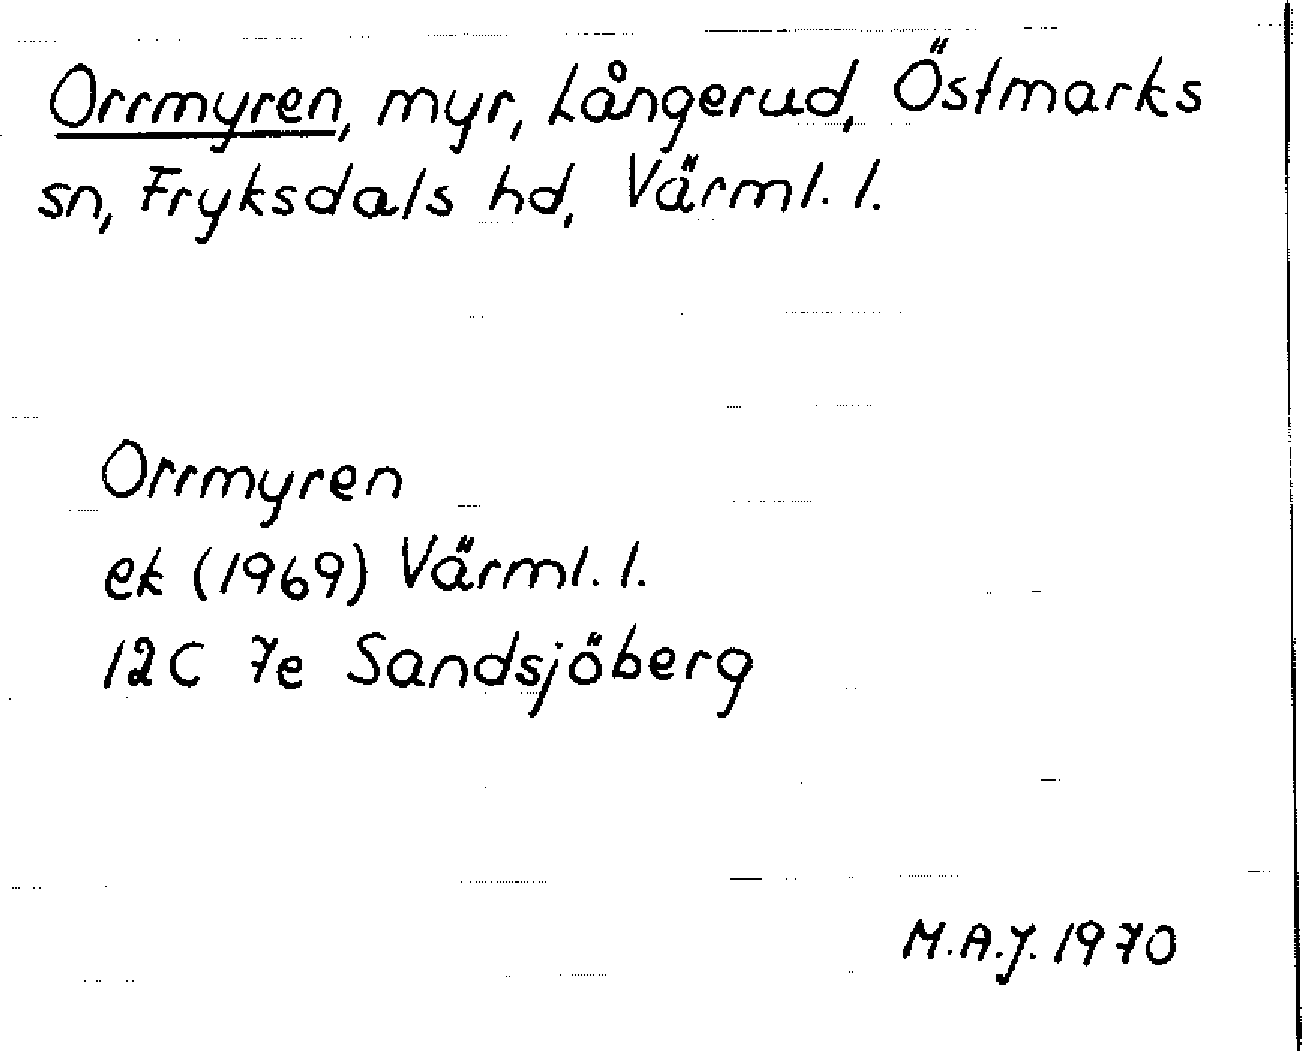 Orrmyren, myr, Långerud, Östmarks
sn, Fryksdals hd, Värml. l.
Orrmyren
ek (1969) Värml. l.
12C 7e Sandsjöberg
M.A.J. 1970